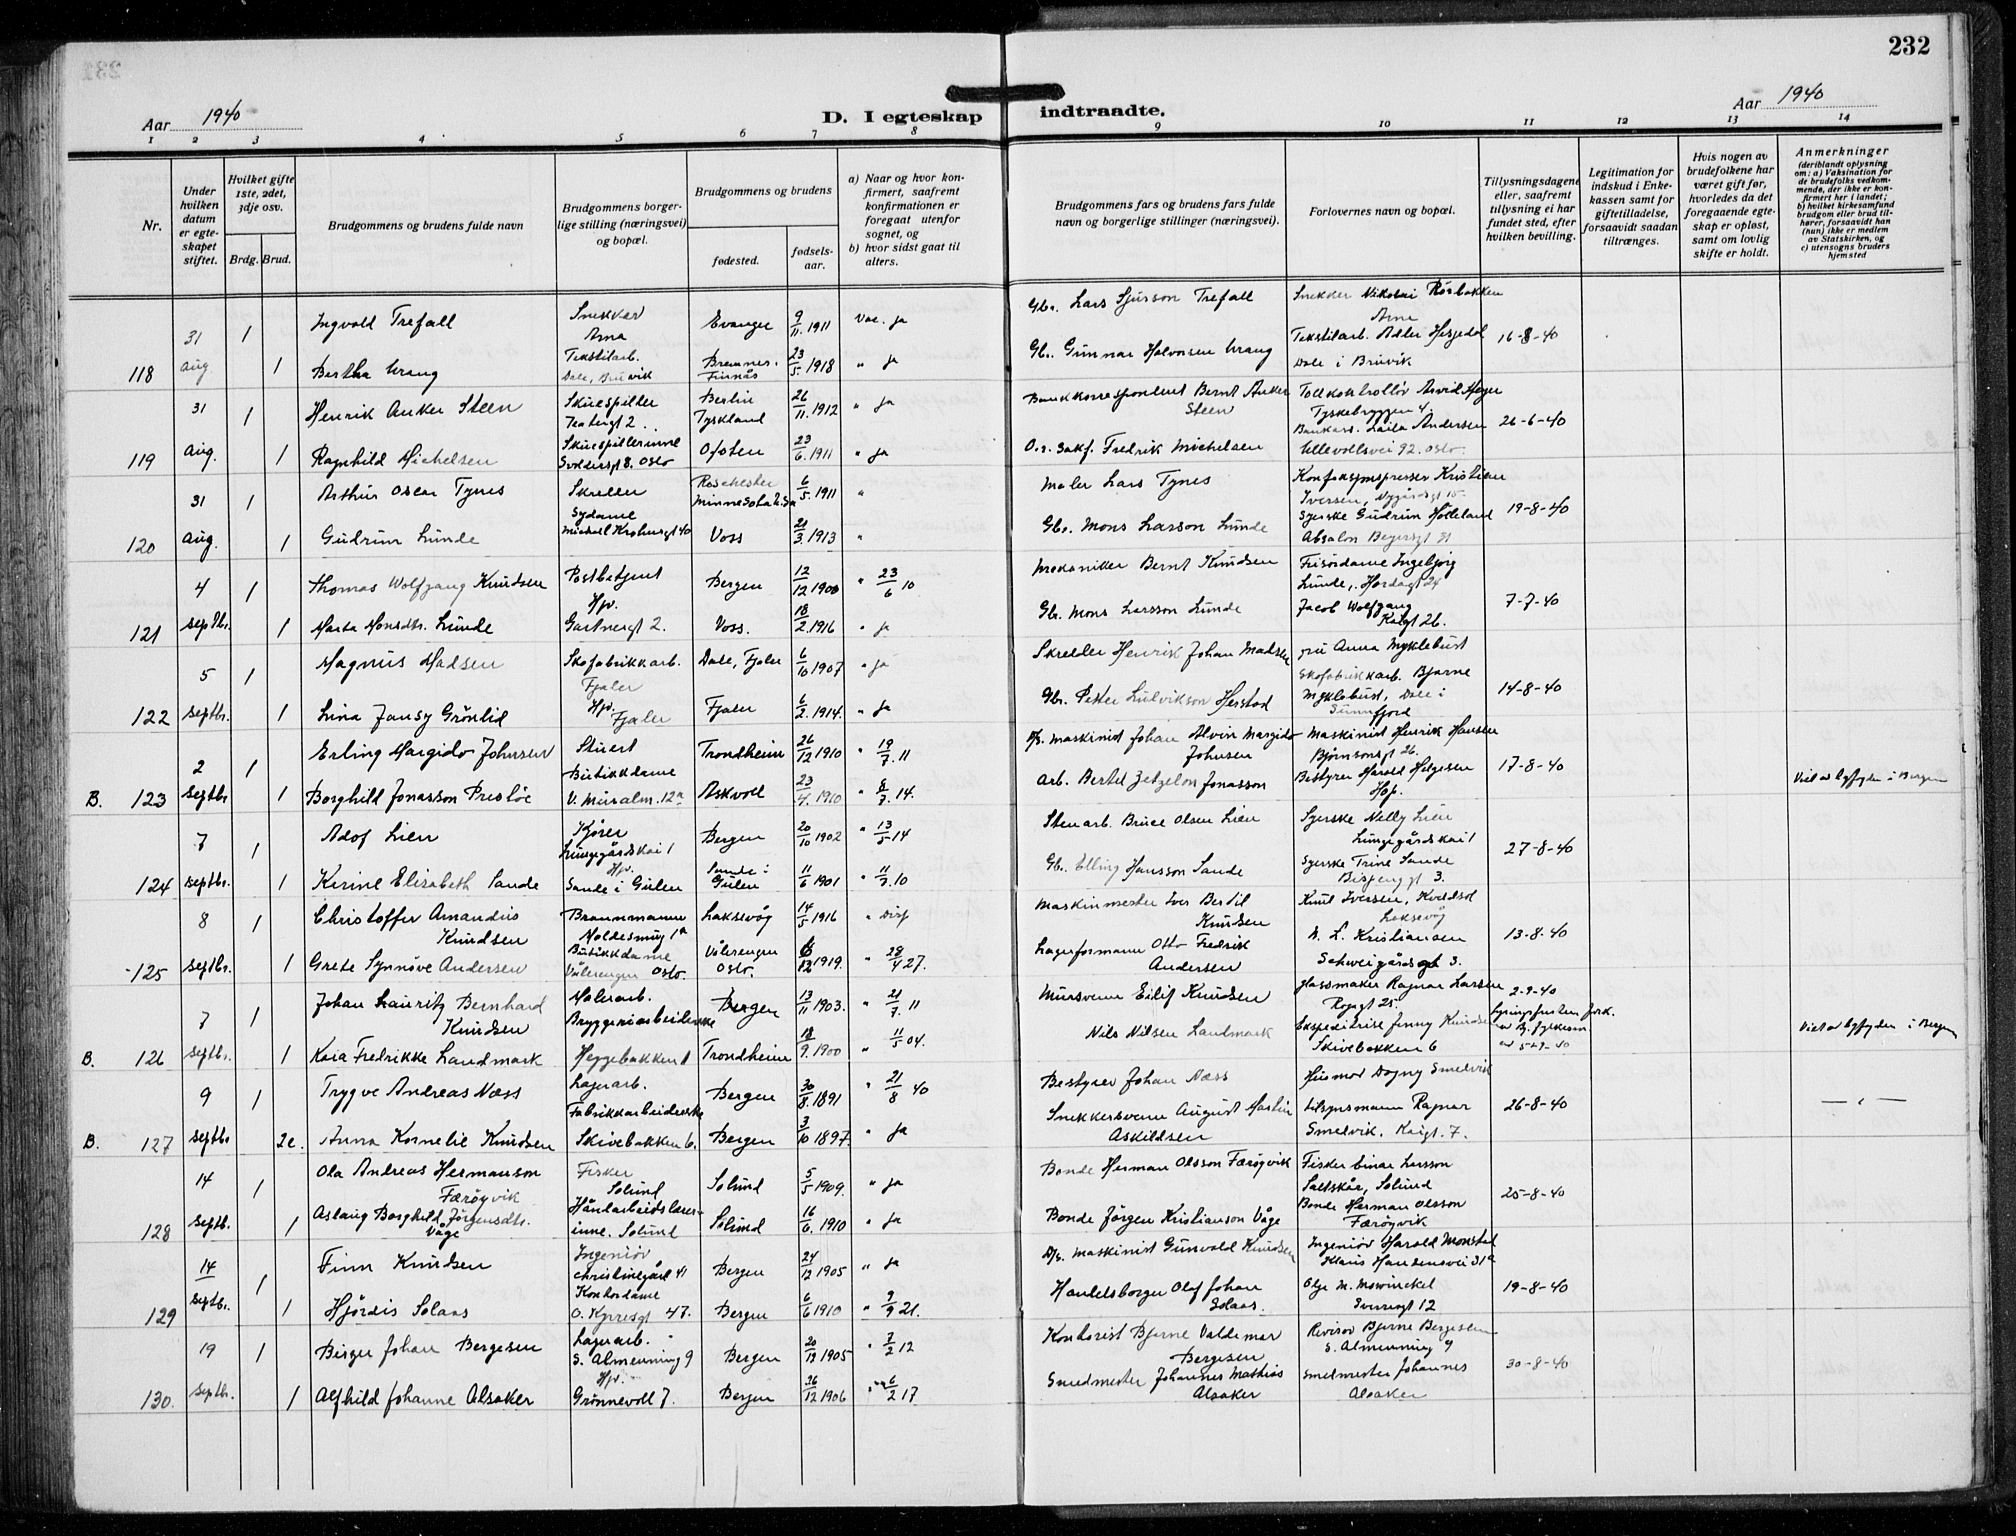 232
Aar 1940
D. I egteskap indtraadte.
Aar 1940
1 2 3 4 5 6 7 8 9 10 11 12 13 14
Nr.
Under hvilken datum er egteskapet stiftet.
Hvilket gifte 1ste, 2det, 3dje osv.
Brdg. Brud.
Brudgommens og brudens fulde navn
Brudgommens borgerlige stilling (næringsvei) og bopæl.
Brudgommens og brudens
fødested.
fødselsaar.
a) Naar og hvor konfirmert, saafremt konfirmationen er foregaat utenfor sognet, og
b) hvor sidst gaat til alters.
Brudgommens fars og brudens fars fulde navn og borgerlige stillinger (næringsvei).
Forlovernes navn og bopæl.
Tillysningsdagene eller, saafremt tillysning ei har fundet sted, efter hvilken bevilling.
Legitimation for indskud i Enkekassen samt for giftetilladelse, forsaavidt saadan tiltrænges.
Hvis nogen av brudefolkene har været gift før, hvorledes da det foregaaende egteskap er opløst, samt om lovlig skifte er holdt.
Anmerkninger
(deriblandt oplysning om: a) Vaksination for de brudefolks vedkommende, der ikke er konfirmert her i landet; b) hvilket kirkesamfund brudgom eller brud tilhører, forsaavidt han (hun) ikke er medlem av Statskirken, og c) utensogns bruders hjemsted
118 31 Aug. 1 Ingvald Trefall Snekker Arna Evanger 9/11 1911 Vac. ja Gb. Lars Sjursson Trefall Snekker Nikolai Røsbakken Arna 16-8-40
1 Bertha Urang Tekstilarb. Dale, Bruvik Bremnes. Finnås 23/5 1918 " ja Gb. Gunnar Halvorsen Urang Tekstilarb. Dale i Bruvik
119 31 Aug. 1 Henrik Anker Steen Skuespiller Teatergt 2. Berlin Tyskland 26/11 1912 " ja Bankkorrespondent Bernt Anker Steen Tollkontrollør Arvid Meyer Tyskebryggen 4. 26-6-40
1 Ragnhild Michelsen Skuespillerinne Svoldersgt 8. Oslo Ofoten 23/6 1911 " ja O.r. sakf. Fredrik Michelsen Laila Andersen Ullevollsvei 92. Oslo
120 31 Aug. 1 Arthur Oscar Tynes Skredder Rochester Minnesota 6/5 1911 " Maler Lars Tynes Kristian Iversen, Nygårdsgt 19-8-40
1 Gudrun Lunde Sydame Michael Krohnsgt 40 Voss 21/3 1913 " Gb. Mons Larsson Lunde Syerske Gudrun Hølleland Absalon Beyersgt
121 4 septbr. 1 Thomas Wolfgang Knudsen Postbetjent Hp. Bergen 12/12 1900 " 23/6 10 Mekaniker Bernt Knudsen Frisørdame Ingebjørg Lunde, Hordagt 24 7-7-40
1 Marta Monsdtr. Lunde Gartnergt 2. Voss. 18/2 1916 " ja Gb. Mons Larsson Lunde Jacob Wolfgang Kaigt 26.
122 5 septbr. 1 Magnus Madsen Skofabrikkarb. Fjaler Dale, Fjaler 6/10 1907 " ja Skredder Henrik Johan Madsen Fru Anna Myklebust 14-8-40
1 Lina Jansy Grönlid Hp. Fjaler Fjaler 6/2 1914. " ja Gb. Peder Ludvikson Herstad Skofabrikkarb. Bjarne Myklebust, Dale i Sunnfjord
B. 123 2 septbr 1 Erling Margido Johnsen Stuert Trondheim 26/12 1910 " 19/7 11 D/s. maskinist Johan Alvin Margido Johnsen Maskinist Henrik Hansen Bjørnsonsgt 26. 17-8-40 Viet av byfogden i Bergen
1 Borghild Jonasson Prestöe Butikkdame V. Muralm. 12a Askvoll 23/4 1910 " 8/7 14. Arb. Bertel Jonasson Bestyrer Harald Helgesen Hop.
124 7 septbr. 1 Adof Lien Kjører Lungegårdskai 1 Bergen 20/10 1902 " 13/5 14 Stenarb. Bruce Olsen Lien Syerske Nelly Lien Lungegårdskai 1 27-8-40
1 Kerine Elisabeth Sande Hp. Sande i Gulen Sande i Gulen 11/6 1901 " 11/7 10 Gb. Elling Hansson Sande Syerske Trine Sande Bispenggt 3.
125 8 septbr. 1 Christoffer Amandus Knudsen Brannmann Noldesmug 1a Laksevåg 14/5 1916 " Disp Maskinmester Iver Bertil Knudsen Knut Iversen, Laksevåg 13-8-40
1 Grete Synnöve Andersen Butikkdame Vålerengen Oslo. Vålerengen Oslo. 6/12 1919. " 28/4 27. Lagerformann Otto Fredrik Andersen Kristiansen Schweigårdsgt 3.
B. 126 7 septbr. 1 Johan Lauritz Bernhard Knudsen Malerarb. Bergen 13/11 1903. " 21/7 11 Murersvenn Eilif Knudsen Glassmaker Ragnar Larsen 25. 2-9-40 Viet av byfogden i Bergen
1 Kaia Fredrikke Landmark Bryggeriarbeiderske Heggebakken 1 Trondheim 18/9 1900 " 11/5 04. Nils Nilsen Landmark Ekspeditrise Jenny Knudsen Skivebakken 6
B. 127 9 septbr 1 Trygve Andreas Næss Lagerarb. Bergen 30/8 1891 " 21/8 40 Bestyrer Johan Næss Husmor Dagny Smelvik 26-8-40 — " —
2e. Anna Kornelie Knudsen Fabrikkarbeiderske Skivebakken 6. Bergen 3/10 1897. " ja Snekkersvenn August Martin Askildsen Tilsynsmann Ragnar Smelvik. Kaigt. 7.
128 14 septb. 1 Ola Andreas Hermanson Færöyvik Fisker Solund Solund 5/5 1909. " ja Bonde Herman Olsson Færöyvik Fisker Einar Larsson Saltskår, Solund 25-8-40
1 Aslaug Borghild Jörgensdtr. Våge Håndarbeidslærerinne. Solund Solund 16/6 1910 " ja Bonde Jörgen Kristianson Våge Bonde Herman Olsson Færöyvik
129 14 septbr. 1 Finn Knudsen Ingeniør Christinegård 41 Bergen 24/12 1905 " ja D/s. maskinist Gunvald Knudsen Ingeniør Harald Monstad Klaus Hanssensvei 31a 19-8-40
1 Hjördis Solaas Kontordame O. Kyrresgt 47. Bergen 6/6 1910 " 9/9 21. Handelsborger Olaf Johan Solaas. M. Mowinckel Sverresgt 12
130. 19 septbr. 1 Birger Johan Bergesen Lagerarb. S. Almenning 9 Bergen 20/12 1905 " 7/2 12 Kontorist Bjarne Valdemar Bergesen Revisor Bjarne Bergesen S. Almenning 9 30-8-40
1 Alfhild Johanne Alsaker Hp. Grönnevoll 7. Bergen 26/12 1906 6/2 17 Smedmester Johannes Mathias Alsaker Smedmester Johannes Alsaker